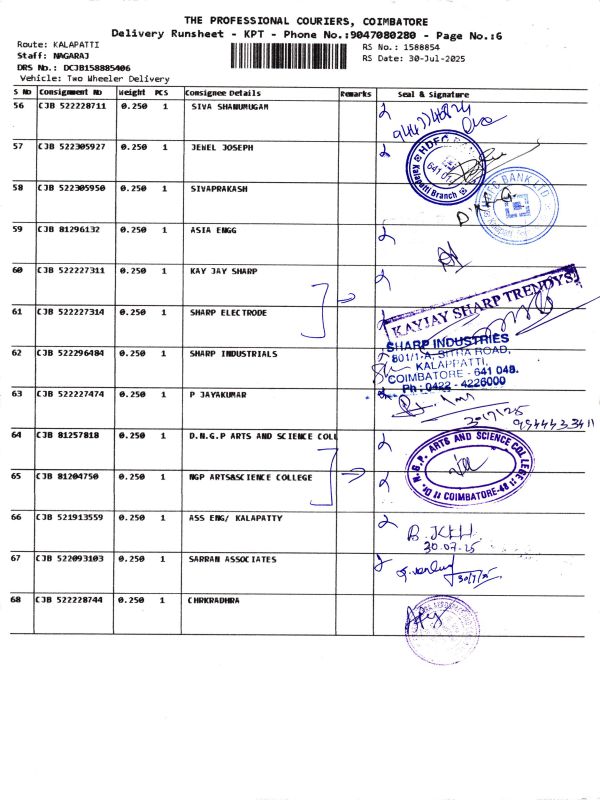 THE PROFESSIONAL COURIERS, COIMBATORE
Delivery Runsheet - KPT - Phone No.:9047080280 - Page No.:6
Route: KALAPATTI
RS No.: 1588854
Staff: NAGARAJ
RS Date: 30-Jul-2025
DRS No.: DCJB158885406
Vehicle: Two Wheeler Delivery
S No Consignment No Weight PCS Consignee Details Remarks Seal & Signature
56 CJB 522228711 0.250 1 SIVA SHANUMUGAM
57 CJB 522305927 0.250 1 JENEL JOSEPH
HDFC BANK
641 0
Kalapatti Branch
58 CJB 522305950 0.250 1 SIVAPRAKASH
HDFC BANK LTD
59 CJB 81296132 0.250 1 ASIA ENGG
60 CJB 522227311 0.250 1 KAY JAY SHARP
61 CJB 522227314 0.250 1 SHARP ELECTRODE
KAYJAY SHARP TRENDYS
62 CJB 522296484 0.250 1 SHARP INDUSTRIALS
SHARP INDUSTRIES
801/1-A, SITRA ROAD,
KALAPPATTI,
COIMBATORE - 641 048.
Ph : 0422 - 4226000
63 CJB 522227474 0.250 1 P JAYAKUMAR
30/7/25
64 CJB 81257818 0.250 1 D.N.G.P ARTS AND SCIENCE COLL
65 CJB 81204750 0.250 1 NGP ARTS&SCIENCE COLLEGE
Dr. N.G.P. ARTS AND SCIENCE COLLEGE
COIMBATORE-48
66 CJB 521913559 0.250 1 ASS ENG/ KALAPATTY
30.07.25
67 CJB 522093103 0.250 1 SARRAN ASSOCIATES
30/7/25
68 CJB 522228744 0.250 1 CHRKRADHRA